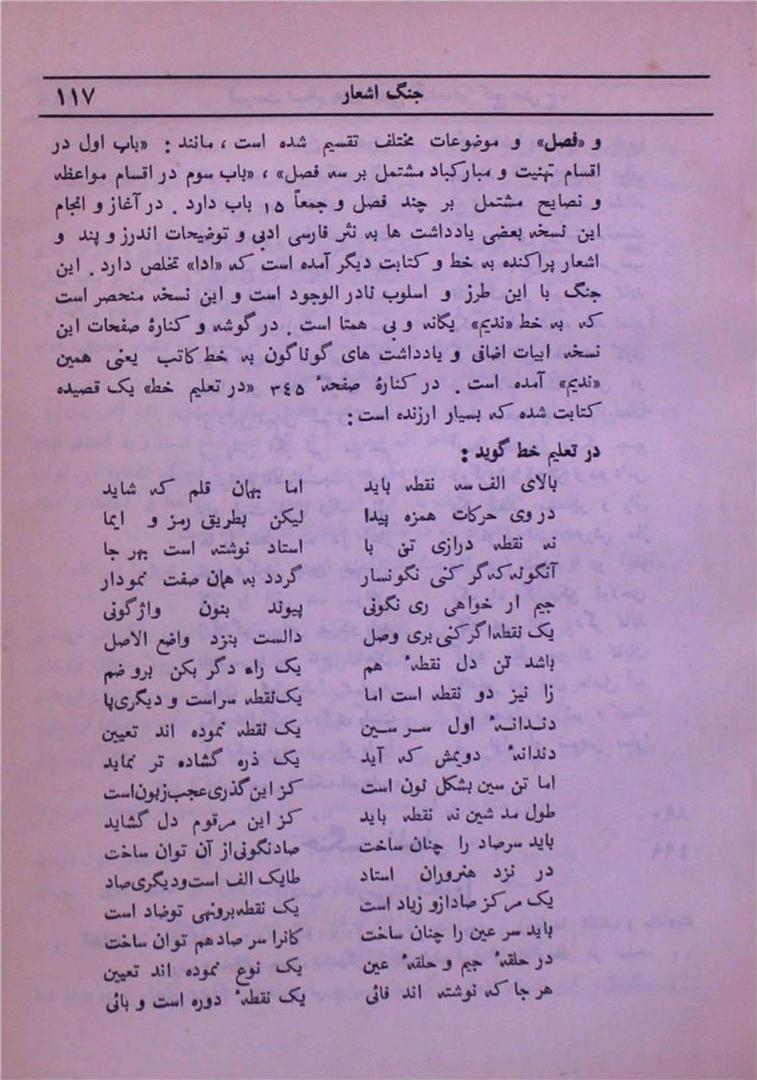 جنگ اشعار ۱۱۷
و «فصل» و موضوعات مختلف تقسیم شده است ، مانند : «باب اول در
اقسام تهنیت و مبارکباد مشتمل بر سه فصل» ، «باب سوم در اقسام مواعظه
و نصایح مشتمل بر چند فصل و جمعاً ۱۵ باب دارد . در آغاز و انجام
این نسخه بعضی یادداشت ها به نثر فارسی ادبی و توضیحات اندرز و پند و
اشعار پراکنده به خط و کتابت دیگر آمده است که «ادا» تخلص دارد . این
جنگ با این طرز و اسلوب نادر الوجود است و این نسخه منحصر است
که به خط «ندیم» یگانه و بی همتا است . در گوشه و کنارهٔ صفحات این
نسخه ابیات اضافی و یادداشت های گوناگون به خط کاتب یعنی همین
«ندیم» آمده است . در کنارهٔ صفحهٔ ۳۴۵ «در تعلیم خط» یک قصیده
کتابت شده که بسیار ارزنده است :
در تعلیم خط گوید :
بالای الف سه نقطه باید اما بهان قلم که شاید
در وی حرکات همزه پیدا لیکن بطریق رمز و ایما
نه نقطه درازی تن با استاد نوشته است بهر جا
آنگونه که گر کنی نگونسار گردد به همان صفت نمودار
جیم ار خواهی ری نگونی پیوند بنون واژگونی
یک نقطه اگر کنی بری وصل دالست بنزد واضع الاصل
باشد تن دل نقطهٔ هم یک راه دگر بکن برو ضم
زا نیز دو نقطه است اما یک نقطه سر است و دیگری پا
دندانهٔ اول سر سین یک لقطه نموده اند تعیین
دندانهٔ دویمش که آید یک ذره گشاده تر نماید
اما تن سین بشکل نون است کز این گذری عجب زبون است
طول مد شین نه نقطه باید کز این مرقوم دل گشاید
باید سر صاد را چنان ساخت صاد نگونی از آن توان ساخت
در نزد هنروران استاد طا یک الف است و دیگری صاد
یک مرکز صاد ازو زیاد است یک نقطه برو نهی تو ضاد است
باید سر عین را چنان ساخت کانرا سر صاد هم توان ساخت
در حلقهٔ جیم و حلقهٔ عین یک نوع نموده اند تعیین
هر جا که نوشته اند فائی یک نقطهٔ دوره است و بائی